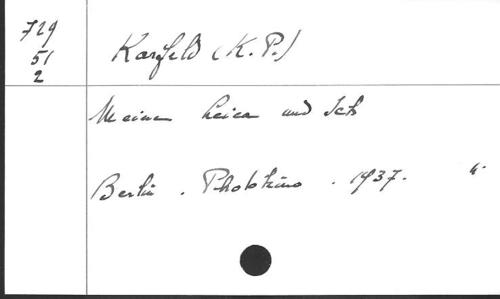 729
51
2
Karfeld (K. P.)
Meine Leica und Ich
Berlin . Photokino . 1937.